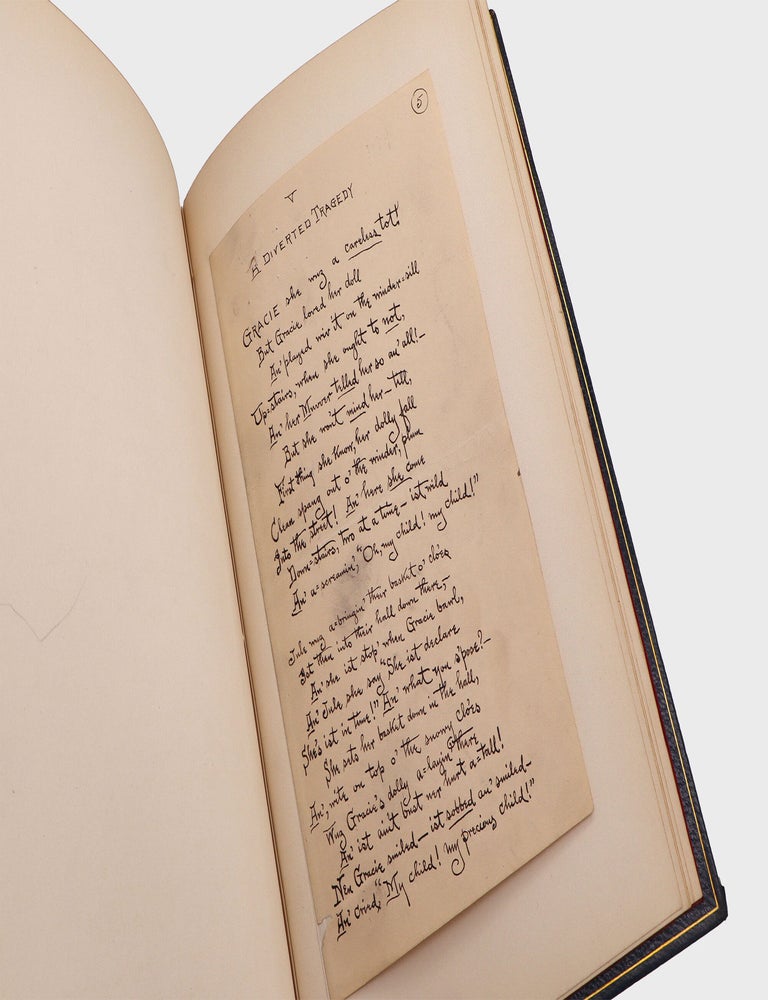 5
V
A DIVERTED TRAGEDY
GRACIE she wuz a careless tot!
But Gracie loved her doll
An' played wiv it on the winder=sill
Up=stairs, when she ought to not,
An' her Muvver telled her so an' all!—
But she won't mind her—till,
First thing she know, her dolly fall
Clean spang out o' the winder, plum
Into the street! An' here she come
Down=stairs, two at a time—ist wild
An' a=screamin', "Oh, my child! my child!"
Jule wuz a=bringin' their basket o' clo'es
Ist then into their hall down there,—
An' she ist stop' when Gracie bawl,
An' Jule she say "She ist declare
She's ist in time!" An' what you s'pose?—
She sets her basket down in the hall,
An', wite on top o' the snowy clo'es
Wuz Gracie's dolly a=layin' there
An' ist ain't bust ner hurt a=tall!
Nen Gracie smiled—ist sobbed an' smiled—
An' cried, "My child! my precious child!"